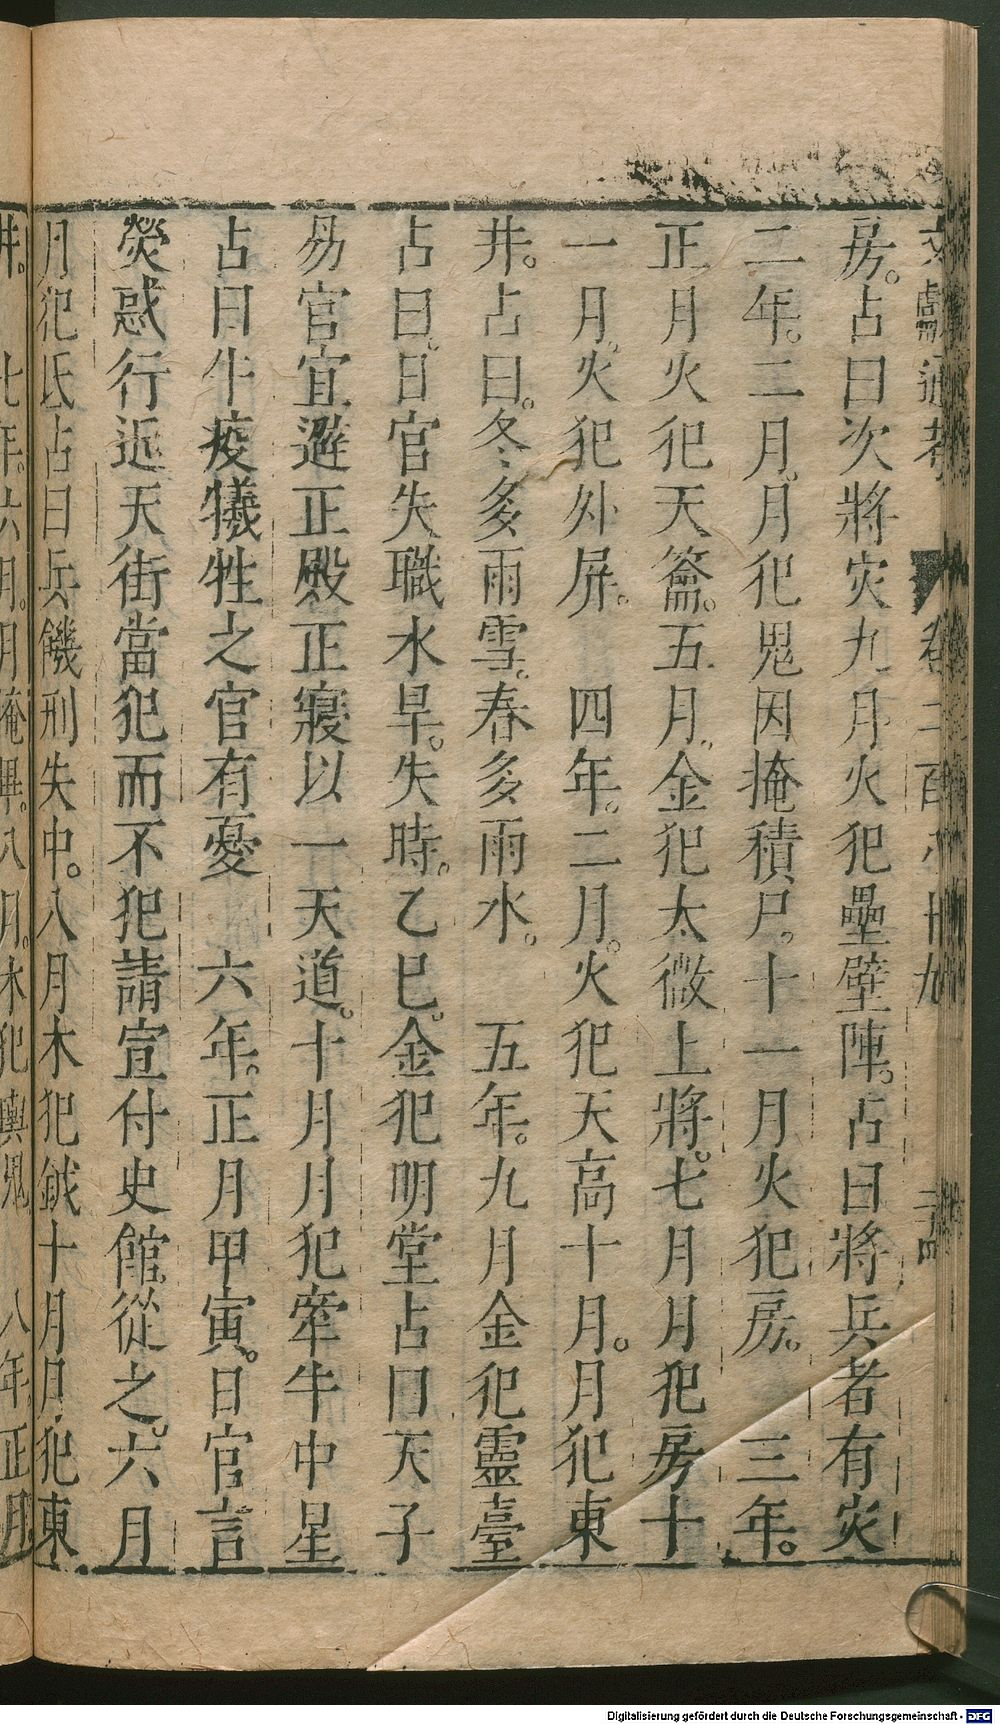 文獻通考 卷二百八十九 二十四
房。占曰次將災九月火犯壘壁陣。占曰將兵者有災
二年。二月。月犯鬼因掩積尸。十一月火犯房。 三年。
正月火犯天籥。五月。金犯太微上將。七月月犯房十
一月。火犯外屏。 四年。二月。火犯天高十月。月犯東
井。占曰。冬多雨雪。春多雨水。 五年。九月金犯靈臺
占曰。日官失職水旱。失時。乙巳。金犯明堂占曰天子
易官宜避正殿正寢以一天道。十月月犯牽牛中星
占曰牛疫犧牲之官有憂 六年。正月甲寅。日官言
熒惑行近天街當犯而不犯請宣付史館從之。六月
月犯氐占曰兵饑刑失中。八月木犯鉞十月月犯東
井。 七年。六月。月掩畢。八月。木犯輿鬼 八年。正月
Digitalisierung gefördert durch die Deutsche Forschungsgemeinschaft - DFG